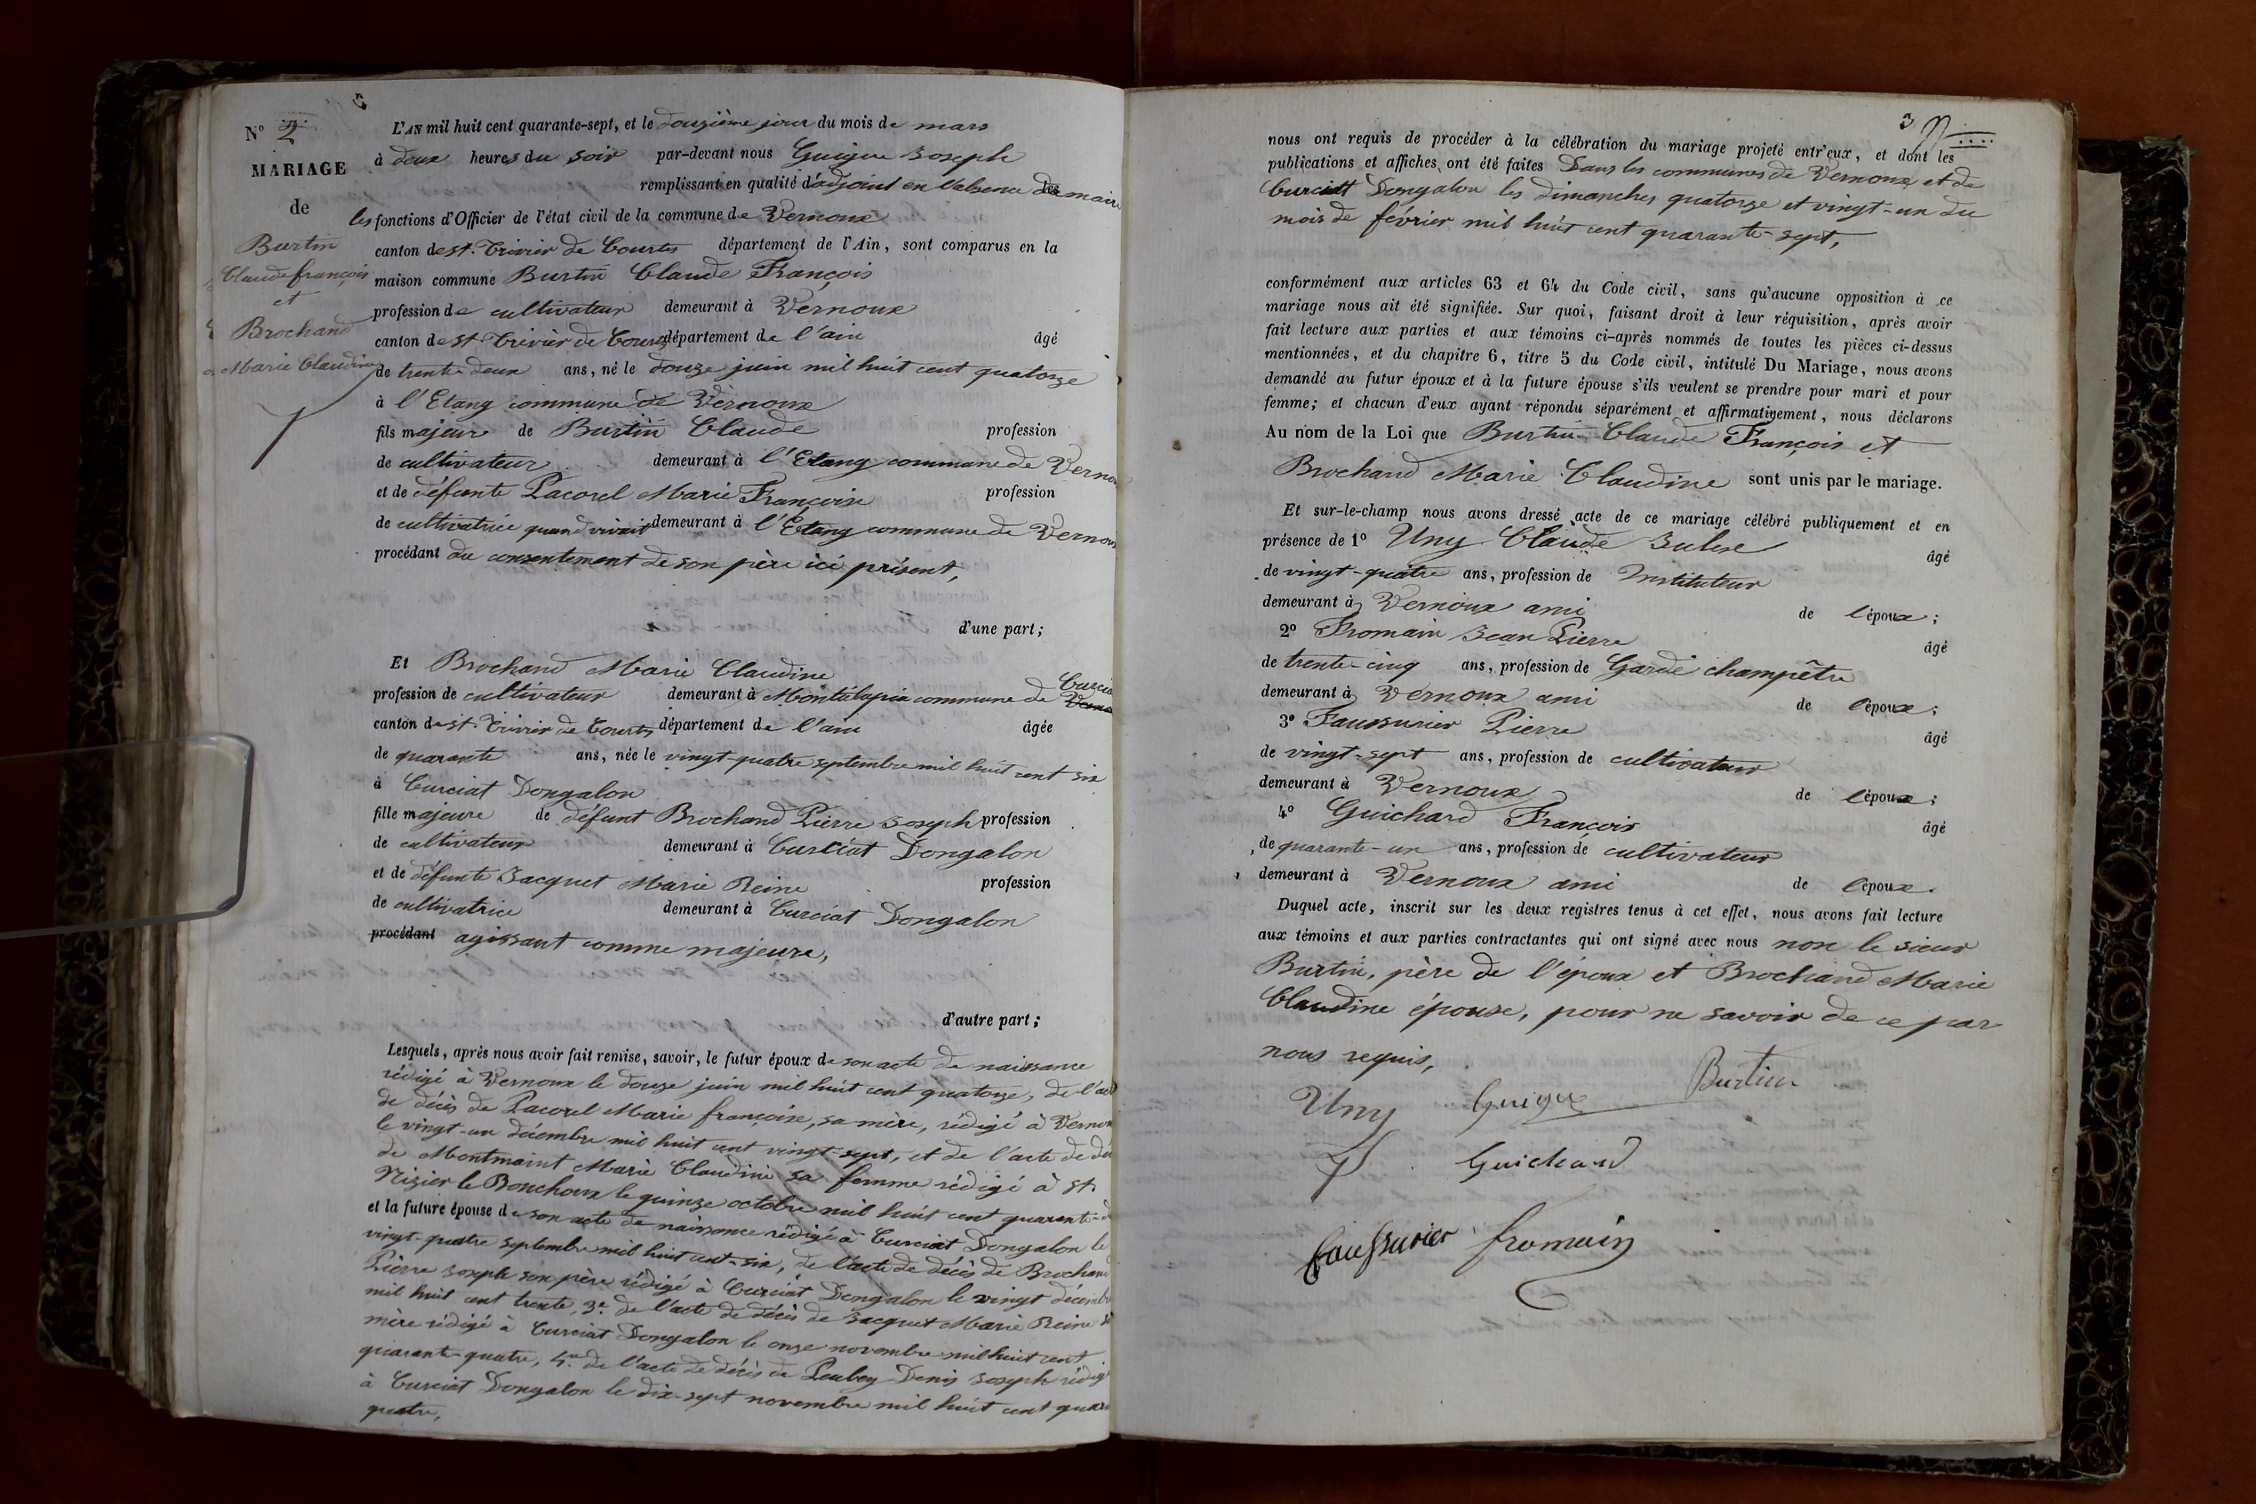 N° 2
MARIAGE
de
Burtin
Claude françois
et
Brochand
Marie Claudine
L'AN mil huit cent quarante-sept, et le douzième jour du mois de mars
à deux heures du soir par-devant nous Guigue Joseph
remplissant en qualité d'adjoint en l'absence du maire
les fonctions d'Officier de l'état civil de la commune de Vernoux
canton de St. Trivier de Courtes département de l'Ain, sont comparus en la
maison commune Burtin Claude François
profession de cultivateur demeurant à Vernoux
canton de St Trivier de Courtes département de l'ain âgé
de trente deux ans, né le douze juin mil huit cent quatorze
à l'Etang commune de Vernoux
fils majeur de Burtin Claude profession
de cultivateur demeurant à l'Etang commune de Vernoux
et de défunte Pacorel Marie Françoise profession
de cultivatrice quand vivait demeurant à l'Etang commune de Vernoux
procédant du consentement de son père ici présent,
d'une part;
Et Brochand Marie Claudine
profession de cultivateur demeurant à Montélapia commune de Curciat
canton de St. Trivier de Courtes département de l'ain âgée
de quarante ans, née le vingt-quatre septembre mil huit cent six
à Curciat Dongalon
fille majeure de défunt Brochand Pierre Joseph profession
de cultivateur demeurant à Curciat Dongalon
et de défunte Jacquet Marie Reine profession
de cultivatrice demeurant à Curciat Dongalon
procédant agissant comme majeure,
d'autre part;
Lesquels, après nous avoir fait remise, savoir, le futur époux de son acte de naissance
rédigé à Vernoux le douze juin mil huit cent quatorze, de l'acte
de décès de Pacorel Marie françoise, sa mère, rédigé à Vernoux
le vingt-un décembre mil huit cent vingt-sept, et de l'acte de dé
de Montmaint Marie Claudine sa femme rédigé à St.
Nizier le Bouchoux le quinze octobre mil huit cent quarante-
et la future épouse de son acte de naissance rédigé à Curciat Dongalon le
vingt-quatre septembre mil huit cent-six, de l'acte de décès de Brochand
Pierre Joseph son père rédigé à Curciat Dongalon le vingt décembre
mil huit cent trente, 3° de l'acte de décès de Jacquet Marie Reine sa
mère rédigé à Curciat Dongalon le onze novembre mil huit cent
quarante-quatre, 4° de l'acte de décès de Peubey Denis Joseph rédigé
à Curciat Dongalon le dix-sept novembre mil huit cent quara
quatre,
3
nous ont requis de procéder à la célébration du mariage projeté entr'eux, et dont les
publications et affiches ont été faites Dans les communes de Vernoux et de
Curciat Dongalon les dimanches quatorze et vingt-un du
mois de février mil huit cent quarante-sept,
conformément aux articles 63 et 64 du Code civil, sans qu'aucune opposition à ce
mariage nous ait été signifiée. Sur quoi, faisant droit à leur réquisition, après avoir
fait lecture aux parties et aux témoins ci-après nommés de toutes les pièces ci-dessus
mentionnées, et du chapitre 6, titre 5 du Code civil, intitulé Du Mariage, nous avons
demandé au futur époux et à la future épouse s'ils veulent se prendre pour mari et pour
femme; et chacun d'eux ayant répondu séparément et affirmativement, nous déclarons
Au nom de la Loi que Burtin Claude François et
Brochand Marie Claudine sont unis par le mariage.
Et sur-le-champ nous avons dressé acte de ce mariage célébré publiquement et en
présence de 1° Uny Claude Julese âgé
de vingt-quatre ans, profession de Instituteur
demeurant à Vernoux ami de l'époux;
2° Fromain Jean Pierre âgé
de trente-cinq ans, profession de Garde champêtre
demeurant à Vernoux ami de l'époux;
3° Faussurier Pierre âgé
de vingt-sept ans, profession de cultivateur
demeurant à Vernoux de l'époux;
4° Guichard François âgé
de quarante-un ans, profession de cultivateur
demeurant à Vernoux ami de l'époux.
Duquel acte, inscrit sur les deux registres tenus à cet effet, nous avons fait lecture
aux témoins et aux parties contractantes qui ont signé avec nous non le sieur
Burtin, père de l'époux et Brochand Marie
Claudine épouse, pour ne savoir de ce par
nous requis,
Burtin
Uny Guigue
Guichard
faussurier fromain